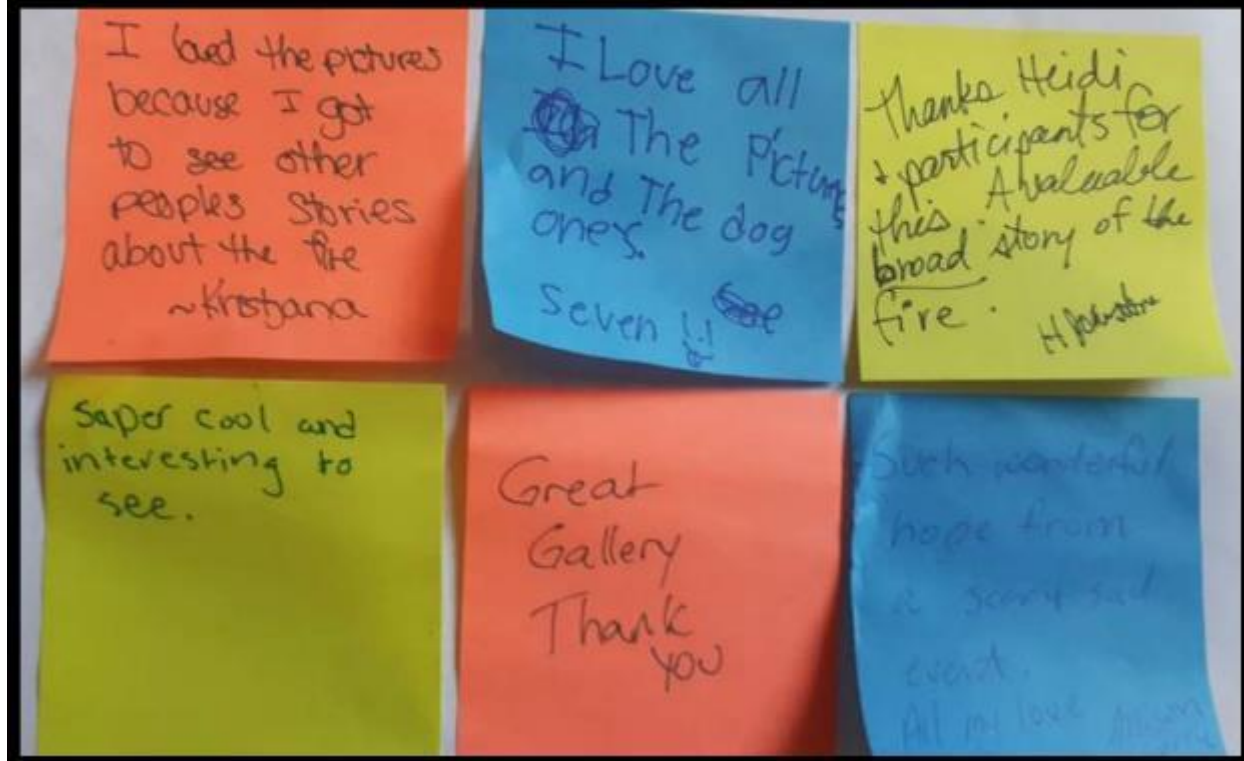 I loved the pictures
because I got
to see other
peoples stories
about the fire
~Kristjana
I Love all
The Pictures
and The dog
ones.
Seven !!
Thanks Heidi
+ participants for
this. A valuable
broad story of the
fire.
H Johnstone
Super cool and
interesting to
see.
Great
Gallery
Thank
you
Such wonderful
hope from
a scary sad
event.
All my love